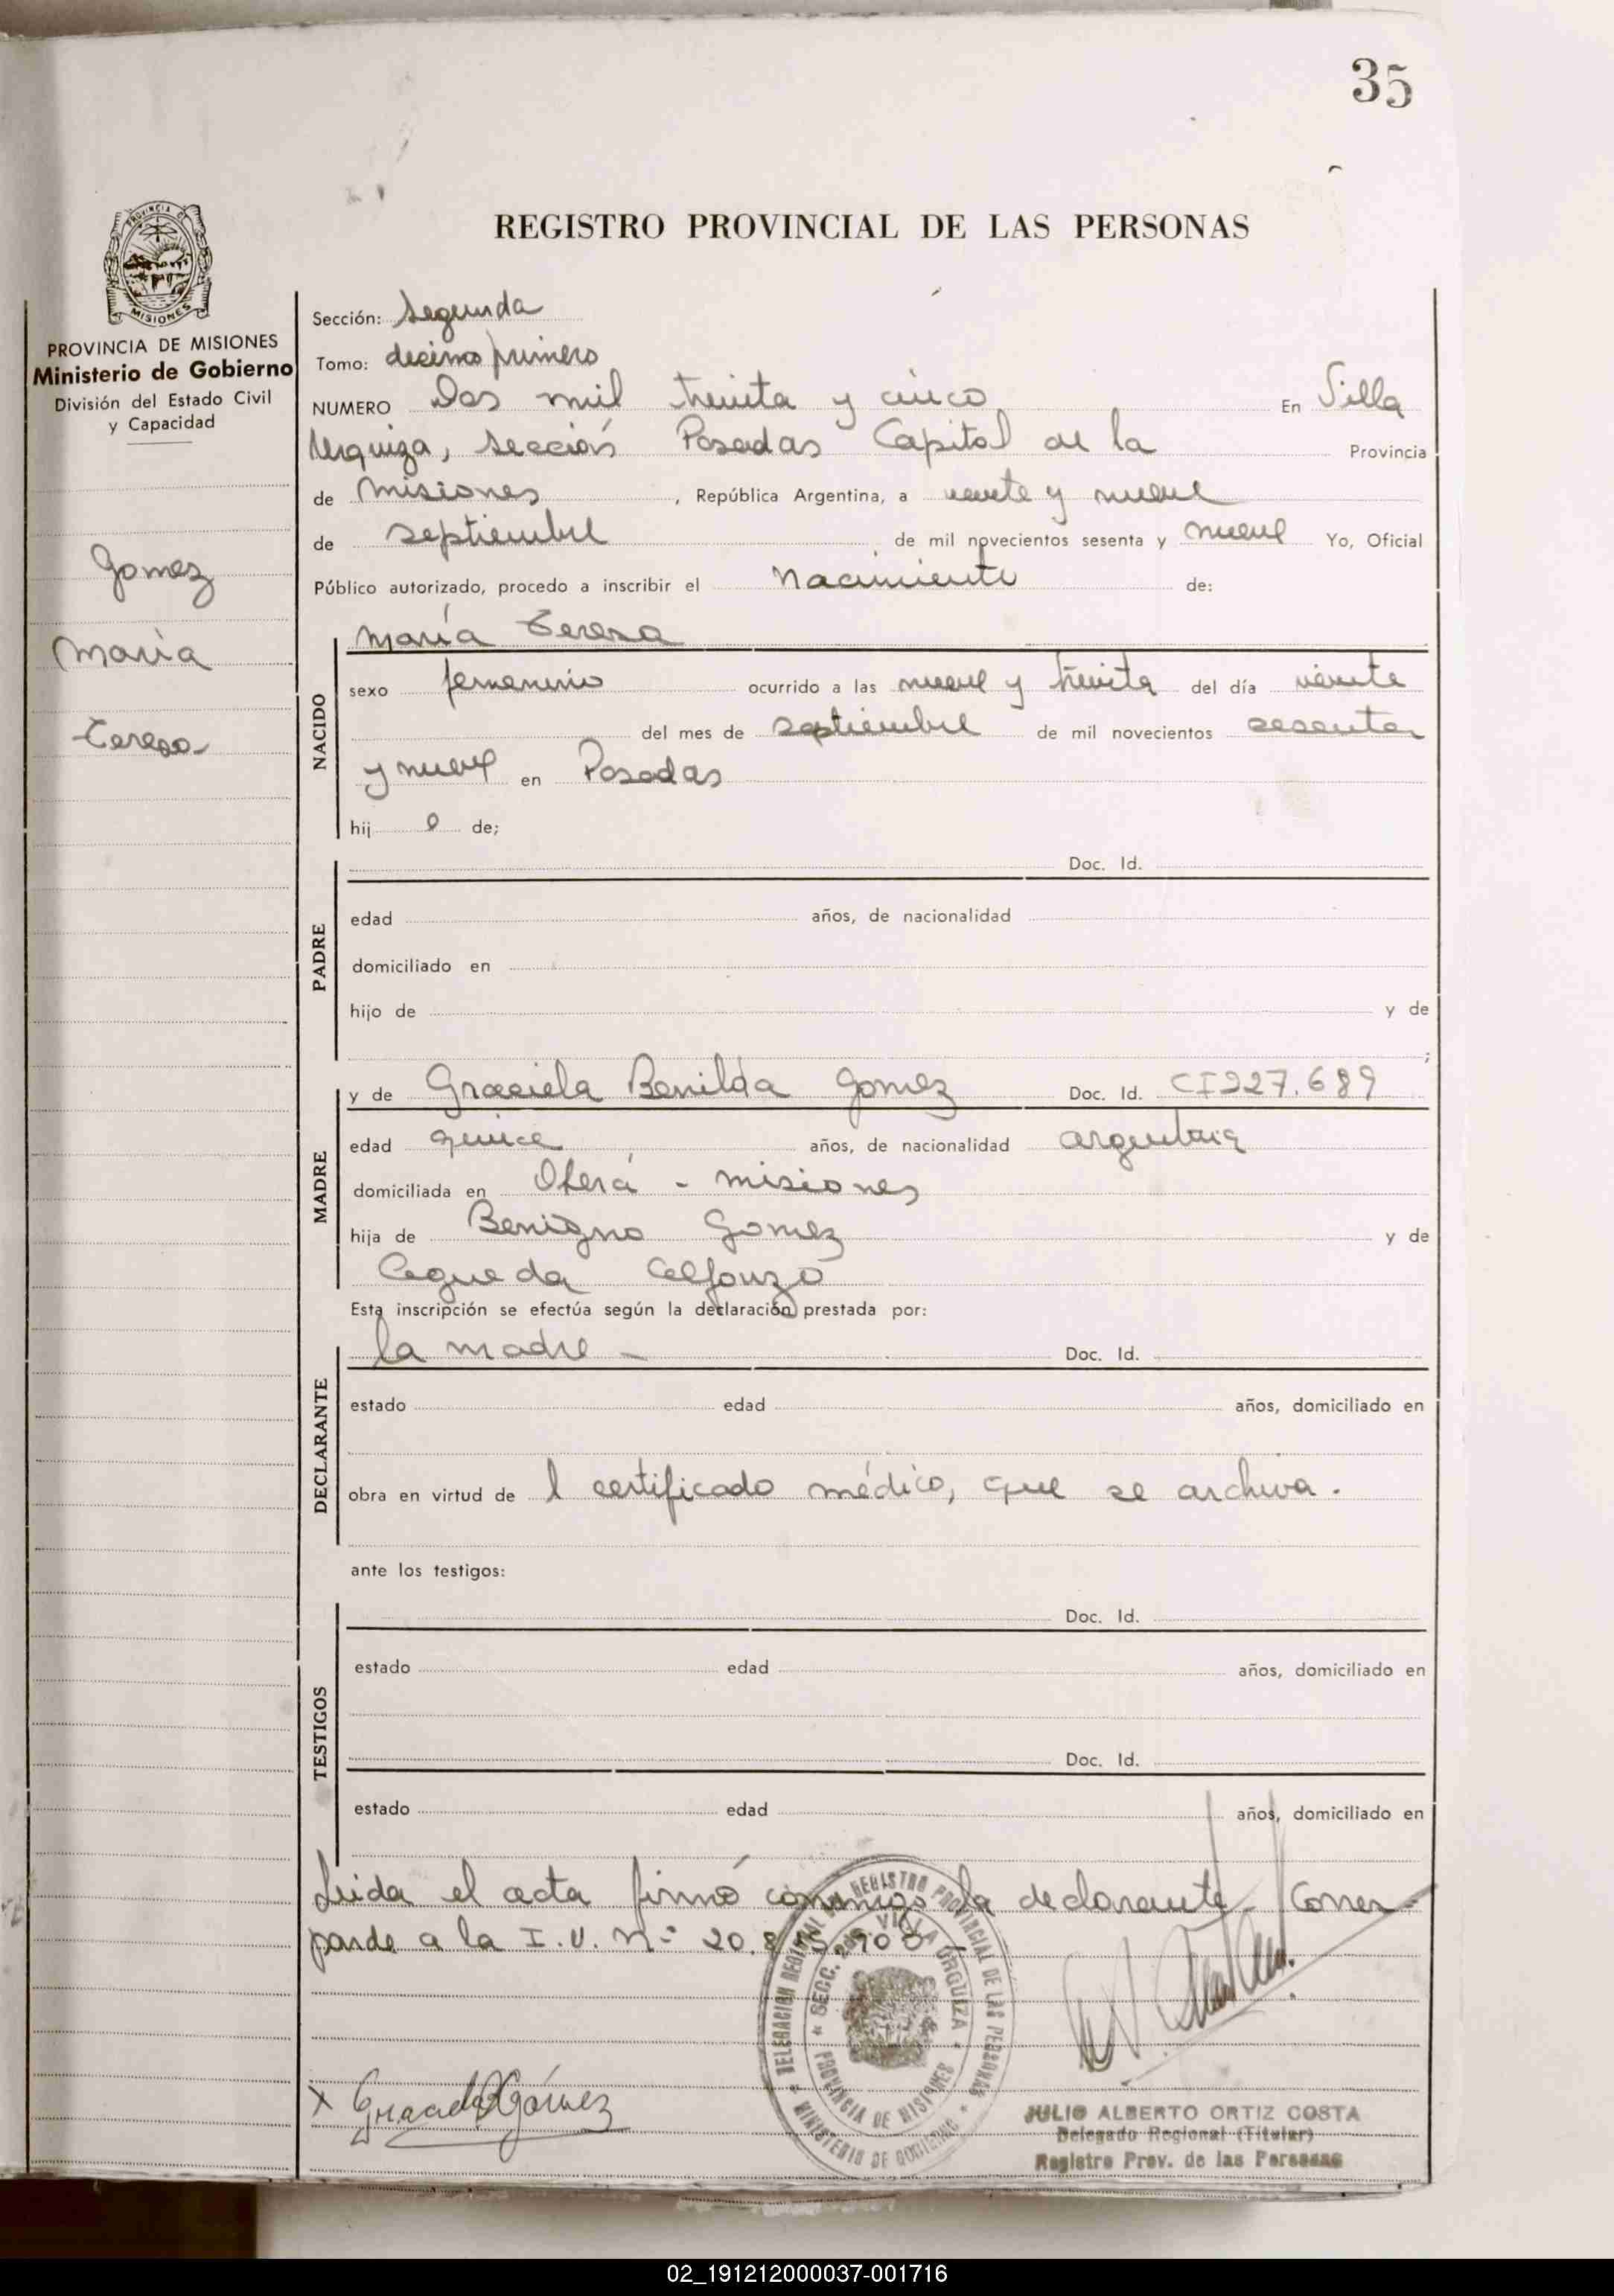 35
REGISTRO PROVINCIAL DE LAS PERSONAS
PROVINCIA DE MISIONES
PROVINCIA DE MISIONES
Ministerio de Gobierno
División del Estado Civil
y Capacidad
Gomez
María
Teresa
Sección: Segunda
Tomo: decimo primero
NUMERO Dos mil treinta y cinco En Villa
Urquiza, Sección Posadas Capital de la Provincia
de Misiones, República Argentina, a veinte y nueve
de septiembre de mil novecientos sesenta y nueve Yo, Oficial
Público autorizado, procedo a inscribir el Nacimiento de:
NACIDO
María Teresa
sexo femenino ocurrido a las nueve y treinta del día veinte
del mes de septiembre de mil novecientos sesenta
y nueve en Posadas
hij a de;
PADRE
Doc. Id.
edad años, de nacionalidad
domiciliado en
hijo de y de
;
MADRE
y de Graciela Benilda Gomez Doc. Id. CI227.689
edad quince años, de nacionalidad argentina
domiciliada en Oberá - Misiones
hija de Benigno Gomez y de
Cegueda Alfonzo
Esta inscripción se efectúa según la declaración prestada por:
DECLARANTE
la madre - Doc. Id.
estado edad años, domiciliado en
obra en virtud de l certificado médico, que se archiva.
ante los testigos:
TESTIGOS
Doc. Id.
estado edad años, domiciliado en
Doc. Id.
estado edad años, domiciliado en
Leida el acta firmó conmigo la declarante - Corres-
ponde a la I.U. Nº 20.815.900 -
DELEGACION REGIONAL DEL REGISTRO PROVINCIAL DE LAS PERSONAS
MINISTERIO DE GOBIERNO
SECC. 2da. VILLA URQUIZA
PROVINCIA DE MISIONES
x Graciela Gómez
JULIO ALBERTO ORTIZ COSTA
Delegado Regional (Titular)
Registro Prov. de las Personas
02_191212000037-001716